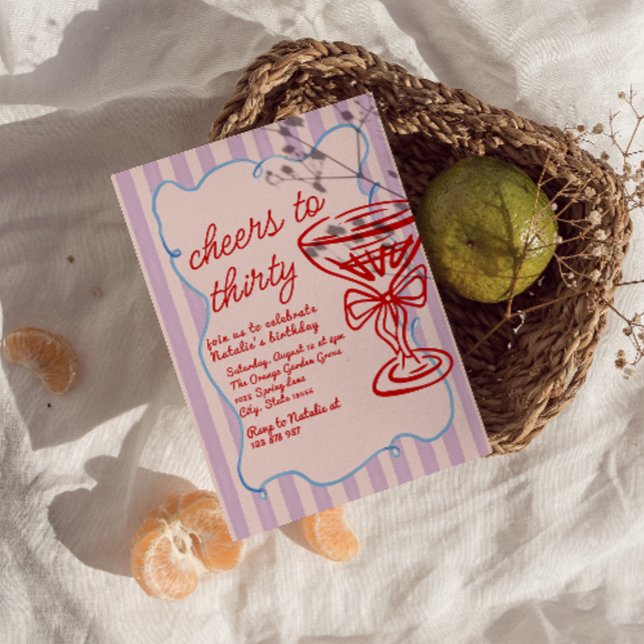 cheers to
thirty
join us to celebrate
Natalie's birthday
Saturday, August 18 at 2pm
The Orange Garden Grove
1025 Spring Lane
City, State 18956
Rsvp to Natalie at
123 878 987